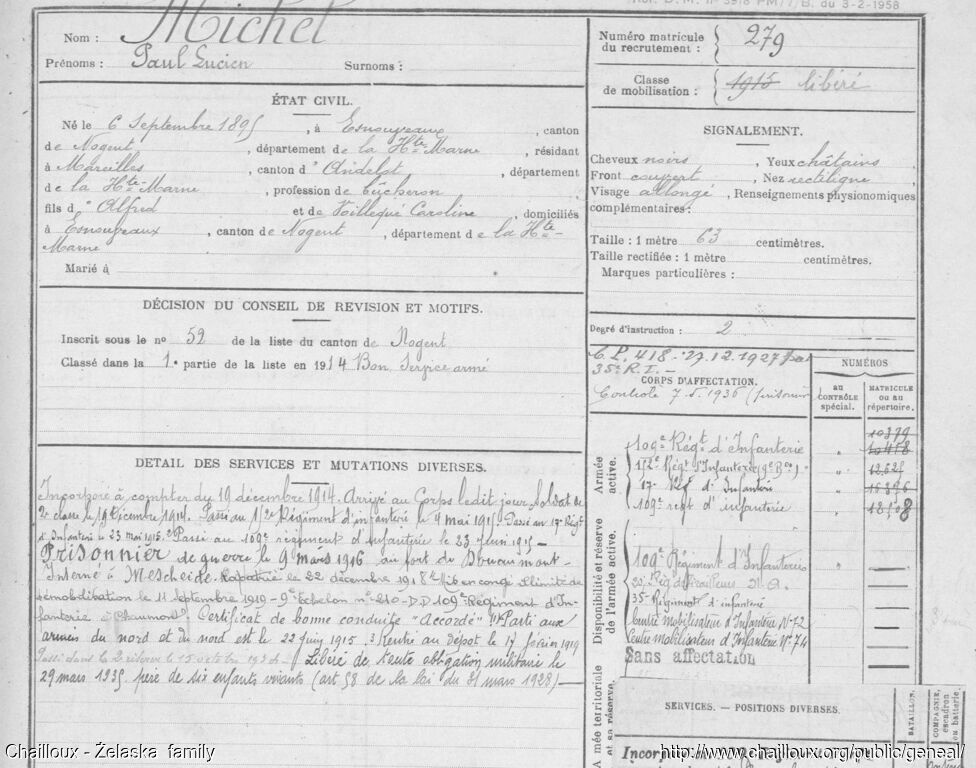 Réf. D. M. n° 3918 PM/7/B. du 3-2-1958
Nom : Michel
Prénoms : Paul Lucien Surnoms :
ÉTAT CIVIL.
Né le 6 Septembre 1895, à Esnouveaux, canton
de Nogent, département de la Hte-Marne, résidant
à Mareilles, canton d'Andelot, département
de la Hte-Marne, profession de bûcheron
fils d'Alfred et de Voillequé Caroline, domiciliés
à Esnouveaux, canton de Nogent, département de la Hte-
Marne
Marié à
DÉCISION DU CONSEIL DE REVISION ET MOTIFS.
Inscrit sous le n° 52 de la liste du canton de Nogent
Classé dans la 1e partie de la liste en 1914 Bon Service armé
DETAIL DES SERVICES ET MUTATIONS DIVERSES.
Incorporé à compter du 19 décembre 1914. Arrivé au Corps ledit jour, Soldat de
2e classe le 19 décembre 1914. Passé au Régiment d'infanterie le 4 mai 1915 Passé au 17e Régt
d'Infanterie le 23 mai 1915. Passé au 109e régiment d'Infanterie le 23 Juin 1915 -
Prisonnier de guerre le 9 mars 1916 au fort de Douaumont -
Interné à Mescheide. Rapatrié le 22 décembre 1918 Mis en congé illimité de
démobilisation le 11 septembre 1919 - 9e Echelon n° 210 - D.D 109e Régiment d'In-
fanterie à Chaumont. Certificat de bonne conduite "Accordé" Parti aux
armées du nord et du nord est le 22 juin 1915. Rentré au Dépot le 17 février 1919
Passé dans la 2e réserve le 15 octobre Libéré de toute obligation militaire le
29 mars 1935 père de six enfants vivants (art 58 de la loi du 31 mars 1928)
Numéro matricule
du recrutement : 279
Classe
de mobilisation : 1915 libéré
SIGNALEMENT.
Cheveux noirs, Yeux châtains
Front couvert, Nez rectiligne,
Visage allongé, Renseignements physionomiques
complémentaires :
Taille : 1 mètre 63 centimètres.
Taille rectifiée : 1 mètre centimètres.
Marques particulières :
Degré d'instruction : 2
C.P. 418 - 27.12.1927 par
35e R.I. -
CORPS D'AFFECTATION.
Controlé 7.5.1936
NUMÉROS
au
CONTRÔLE
spécial.
MATRICULE
ou au
répertoire.
Armée
active.
109e Régt d'Infanterie
Régt d'Infanterie
17e Rgt d'Infanterie
109e regt d'infanterie
10379
10458
18508
Disponibilité et réserve
de l'armée active.
109e Régiment d'Infanterie
35e Régiment d'infanterie
Centre mobilisateur d'Infanterie N° 72
Centre mobilisateur d'Infanterie N° 74
Sans affectation
Armée territoriale
et sa réserve.
SERVICES. — POSITIONS DIVERSES.
BATAILLON.
COMPAGNIE,
escadron
ou batterie.
Chailloux - Żelaska family
http://www.chailloux.org/public/geneal/